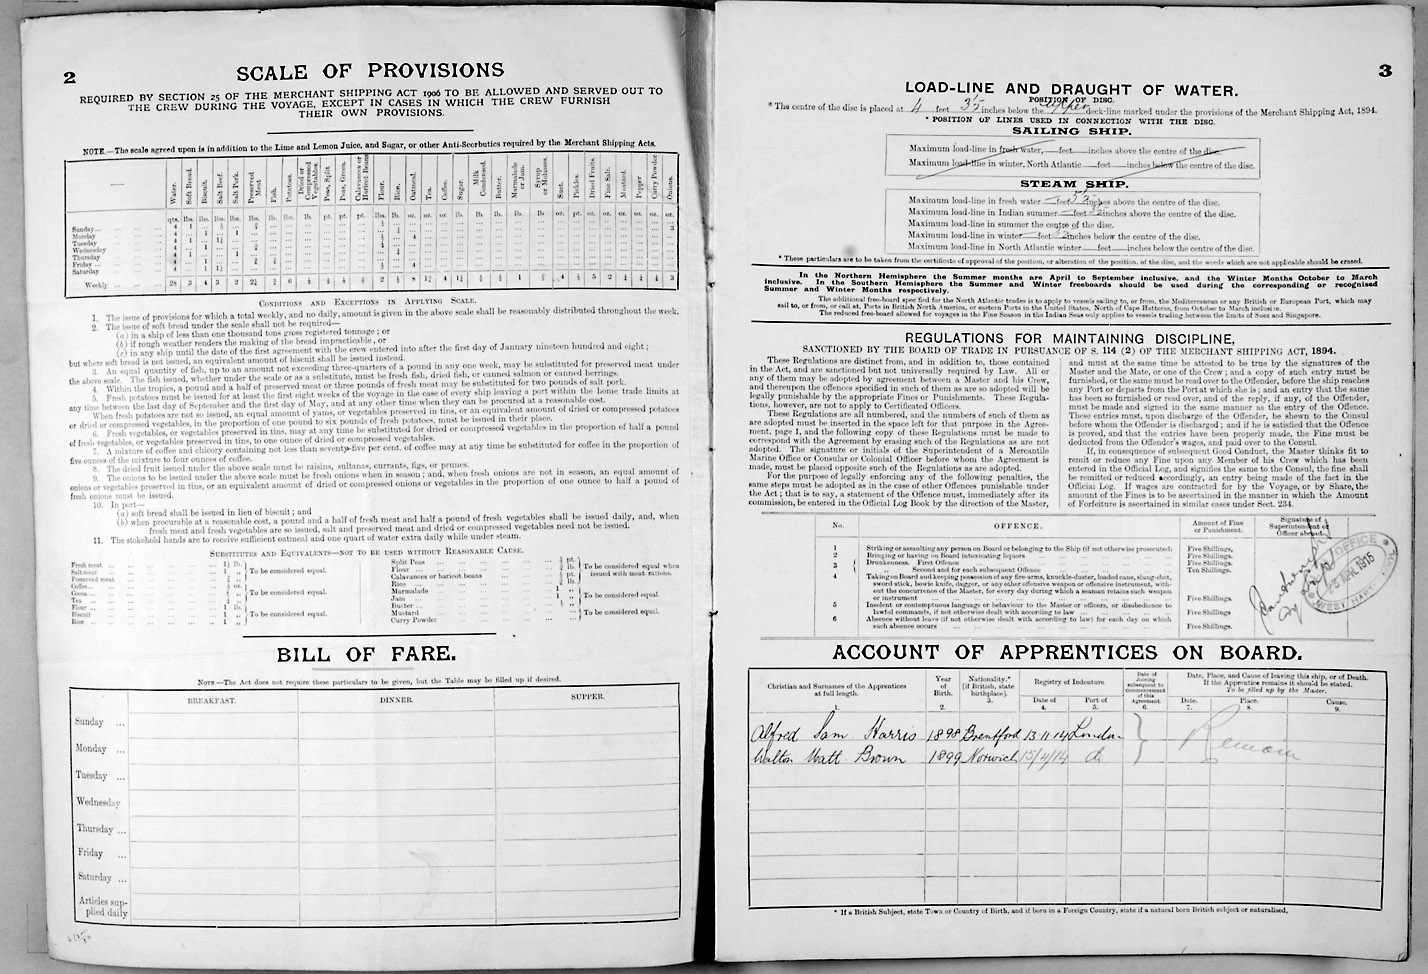 2
SCALE OF PROVISIONS
REQUIRED BY SECTION 25 OF THE MERCHANT SHIPPING ACT 1906 TO BE ALLOWED AND SERVED OUT TO
THE CREW DURING THE VOYAGE, EXCEPT IN CASES IN WHICH THE CREW FURNISH
THEIR OWN PROVISIONS.
NOTE.—The scale agreed upon is in addition to the Lime and Lemon Juice, and Sugar, or other Anti-Scorbutics required by the Merchant Shipping Acts.
Water. Soft Bread. Biscuit. Salt Beef. Salt Pork. Preserved Meat. Fish. Potatoes. Dried or Compressed Vegetables. Peas, Split. Peas, Green. Calavances or Haricot Beans. Flour. Rice. Oatmeal. Tea. Coffee. Sugar. Milk Condensed. Butter. Marmalade or Jam. Syrup or Molasses. Suet. Pickles. Dried Fruits. Fine Salt. Mustard. Pepper Curry Powder Onions.
qts. lbs. lbs. lbs. lbs. lbs. lb. lbs. lb. pt. pt. pt. lbs. lb. oz. oz. oz. lb. lb. lb. lb. lb oz. pt. oz. oz. oz. oz. oz. oz.
Sunday...
Monday
Tuesday
Wednesday
Thursday
Friday ...
Saturday
Weekly
CONDITIONS AND EXCEPTIONS IN APPLYING SCALE.
1. The issue of provisions for which a total weekly, and no daily, amount is given in the above scale shall be reasonably distributed throughout the week.
2. The issue of soft bread under the scale shall not be required—
(a) in a ship of less than one thousand tons gross registered tonnage; or
(b) if rough weather renders the making of the bread impracticable, or
(c) in any ship until the date of the first agreement with the crew entered into after the first day of January nineteen hundred and eight;
but where soft bread is not issued, an equivalent amount of biscuit shall be issued instead.
3. An equal quantity of fish, up to an amount not exceeding three-quarters of a pound in any one week, may be substituted for preserved meat under
the above scale. The fish issued, whether under the scale or as a substitute, must be fresh fish, dried fish, or canned salmon or canned herrings.
4. Within the tropics, a pound and a half of preserved meat or three pounds of fresh meat may be substituted for two pounds of salt pork.
5. Fresh potatoes must be issued for at least the first eight weeks of the voyage in the case of every ship leaving a port within the home trade limits at
any time between the last day of September and the first day of May, and at any other time when they can be procured at a reasonable cost.
When fresh potatoes are not so issued, an equal amount of yams, or vegetables preserved in tins, or an equivalent amount of dried or compressed potatoes
or dried or compressed vegetables, in the proportion of one pound to six pounds of fresh potatoes, must be issued in their place.
6. Fresh vegetables, or vegetables preserved in tins, may at any time be substituted for dried or compressed vegetables in the proportion of half a pound
of fresh vegetables, or vegetables preserved in tins, to one ounce of dried or compressed vegetables.
7. A mixture of coffee and chicory containing not less than seventy-five per cent. of coffee may at any time be substituted for coffee in the proportion of
five ounces of the mixture to four ounces of coffee.
8. The dried fruit issued under the above scale must be raisins, sultanas, currants, figs, or prunes.
9. The onions to be issued under the above scale must be fresh onions when in season; and, when fresh onions are not in season, an equal amount of
onions or vegetables preserved in tins, or an equivalent amount of dried or compressed onions or vegetables in the proportion of one ounce to half a pound of
fresh onions must be issued.
10. In port—
(a) soft bread shall be issued in lieu of biscuit; and
(b) when procurable at a reasonable cost, a pound and a half of fresh meat and half a pound of fresh vegetables shall be issued daily, and, when
fresh meat and fresh vegetables are so issued, salt and preserved meat and dried or compressed vegetables need not be issued.
11. The stokehold hands are to receive sufficient oatmeal and one quart of water extra daily while under steam.
SUBSTITUTES AND EQUIVALENTS—NOT TO BE USED WITHOUT REASONABLE CAUSE.
Fresh meat
Salt meat
Preserved meat
To be considered equal.
Coffee
Cocoa
Tea
To be considered equal.
Flour
Biscuit
Rice
To be considered equal.
Split Peas
Flour
Calavances or haricot beans
Rice
To be considered equal when
issued with meat rations.
Marmalade
Jam
Butter
To be considered equal.
Mustard
Curry Powder
To be considered equal.
BILL OF FARE.
NOTE—The Act does not require these particulars to be given, but the Table may be filled up if desired.
BREAKFAST. DINNER. SUPPER.
Sunday ...
Monday ...
Tuesday ...
Wednesday
Thursday ...
Friday ...
Saturday ...
Articles sup-
plied daily
3
LOAD-LINE AND DRAUGHT OF WATER.
POSITION OF DISC.
* The centre of the disc is placed at 4 feet 3½ inches below the upper deck-line marked under the provisions of the Merchant Shipping Act, 1894.
* POSITION OF LINES USED IN CONNECTION WITH THE DISC.
SAILING SHIP.
Maximum load-line in fresh water, feet inches above the centre of the disc.
Maximum load-line in winter, North Atlantic feet inches below the centre of the disc.
STEAM SHIP.
Maximum load-line in fresh water feet inches above the centre of the disc.
Maximum load-line in Indian summer feet inches above the centre of the disc.
Maximum load-line in summer the centre of the disc.
Maximum load-line in winter feet inches below the centre of the disc.
Maximum load-line in North Atlantic winter feet inches below the centre of the disc.
* These particulars are to be taken from the certificate of approval of the position, or alteration of the position, of the disc, and the words which are not applicable should be erased.
In the Northern Hemisphere the Summer months are April to September inclusive, and the Winter Months October to March
inclusive. In the Southern Hemisphere the Summer and Winter freeboards should be used during the corresponding or recognised
Summer and Winter Months respectively.
The additional free-board specified for the North Atlantic trades is to apply to vessels sailing to, or from, the Mediterranean or any British or European Port, which may
sail to, or from, or call at, Ports in British North America, or eastern Ports in the United States, North of Cape Hatteras, from October to March inclusive.
The reduced free-board allowed for voyages in the Fine Season in the Indian Seas only applies to vessels trading between the limits of Suez and Singapore.
REGULATIONS FOR MAINTAINING DISCIPLINE,
SANCTIONED BY THE BOARD OF TRADE IN PURSUANCE OF S. 114 (2) OF THE MERCHANT SHIPPING ACT, 1894.
These Regulations are distinct from, and in addition to, those contained
in the Act, and are sanctioned but not universally required by Law. All or
any of them may be adopted by agreement between a Master and his Crew,
and thereupon the offences specified in such of them as are so adopted will be
legally punishable by the appropriate Fines or Punishments. These Regula-
tions, however, are not to apply to Certificated Officers.
These Regulations are all numbered, and the numbers of such of them as
are adopted must be inserted in the space left for that purpose in the Agree-
ment, page 1, and the following copy of these Regulations must be made to
correspond with the Agreement by erasing such of the Regulations as are not
adopted. The signature or initials of the Superintendent of a Mercantile
Marine Office or Consular or Colonial Officer before whom the Agreement is
made, must be placed opposite such of the Regulations as are adopted.
For the purpose of legally enforcing any of the following penalties, the
same steps must be adopted as in the case of other Offences punishable under
the Act; that is to say, a statement of the Offence must, immediately after its
commission, be entered in the Official Log Book by the direction of the Master,
and must at the same time be attested to be true by the signatures of the
Master and the Mate, or one of the Crew; and a copy of such entry must be
furnished, or the same must be read over to the Offender, before the ship reaches
any Port or departs from the Port at which she is; and an entry that the same
has been so furnished or read over, and of the reply, if any, of the Offender,
must be made and signed in the same manner as the entry of the Offence.
These entries must, upon discharge of the Offender, be shewn to the Consul
before whom the Offender is discharged; and if he is satisfied that the Offence
is proved, and that the entries have been properly made, the Fine must be
deducted from the Offender's wages, and paid over to the Consul.
If, in consequence of subsequent Good Conduct, the Master thinks fit to
remit or reduce any Fine upon any Member of his Crew which has been
entered in the Official Log, and signifies the same to the Consul, the fine shall
be remitted or reduced accordingly, an entry being made of the fact in the
Official Log. If wages are contracted for by the Voyage, or by Share, the
amount of the Fines is to be ascertained in the manner in which the Amount
of Forfeiture is ascertained in similar cases under Sect. 234.
No. OFFENCE. Amount of Fine or Punishment. Signature of Superintendent or Officer abroad.
1 Striking or assaulting any person on Board or belonging to the Ship (if not otherwise prosecuted) Five Shillings.
2 Bringing or having on Board intoxicating liquors Five Shillings.
3 Drunkenness. First Offence Five Shillings.
Second and for each subsequent Offence Ten Shillings.
4 Taking on Board and keeping possession of any fire-arms, knuckle-duster, loaded cane, slung-shot,
sword-stick, bowie knife, dagger, or any other offensive weapon or offensive instrument, with-
out the concurrence of the Master, for every day during which a seaman retains such weapon
or instrument Five Shillings.
5 Insolent or contemptuous language or behaviour to the Master or officers, or disobedience to
lawful commands, if not otherwise dealt with according to law Five Shillings
6 Absence without leave (if not otherwise dealt with according to law) for each day on which
such absence occurs Five Shillings.
OFFICE
APL 1915
WEST HART
ACCOUNT OF APPRENTICES ON BOARD.
Christian and Surnames of the Apprentices at full length. 1.
Year of Birth. 2.
Nationality.* [If British, state birthplace]. 3.
Registry of Indenture
Date of 4.
Port of 5.
Date of Joining subsequent to commencement of this Agreement. 6.
Date, Place, and Cause of leaving this ship, or of Death.
If the Apprentice remains it should be stated.
To be filled up by the Master.
Date. 7. Place. 8. Cause. 9.
Alfred Sam Harris 1898 Brentford 13.11.14 London Remain
Walton Watt Brown 1899 Norwich 15/4/14 do
* If a British Subject, state Town or Country of Birth, and if born in a Foreign Country, state if a natural born British subject or naturalised,